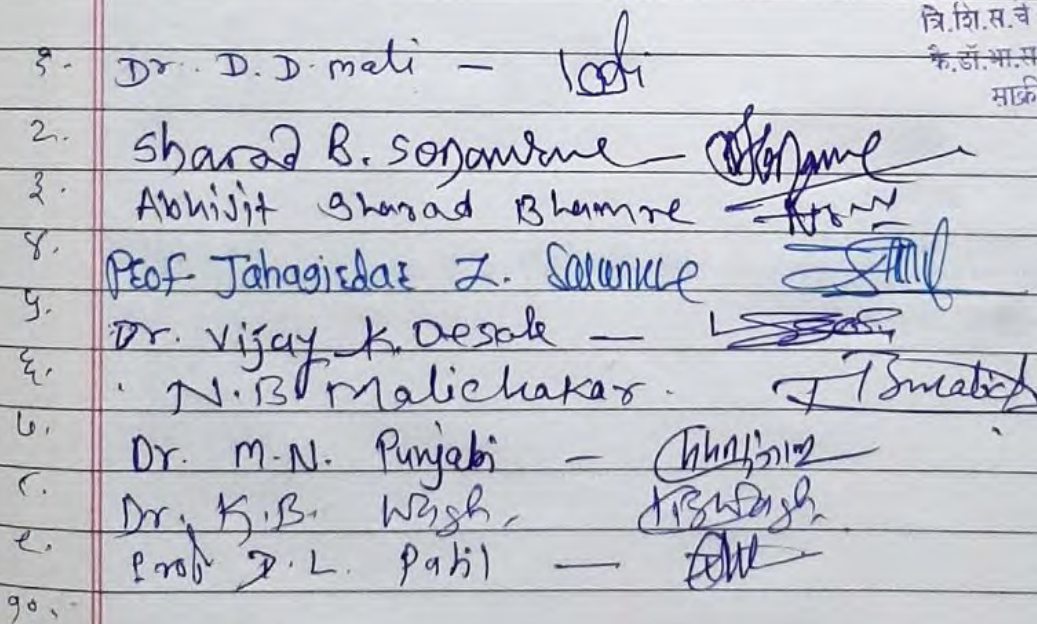 त्रि.शि.स.चे
के.डॉ.भा.स
माक्री
१. Dr. D. D. mali —
२. Sharad B. Sonawane —
३. Abhijit Sharad Bhamre —
४. Prof Jahagirdar Z. Salunke
५. Dr. Vijay K. Desale —
६. N.B Malichakar.
७. Dr. M.N. Punjabi —
८. Dr. K.B. Wagh, KBWagh
९. Prof D. L. Patil —
१०.